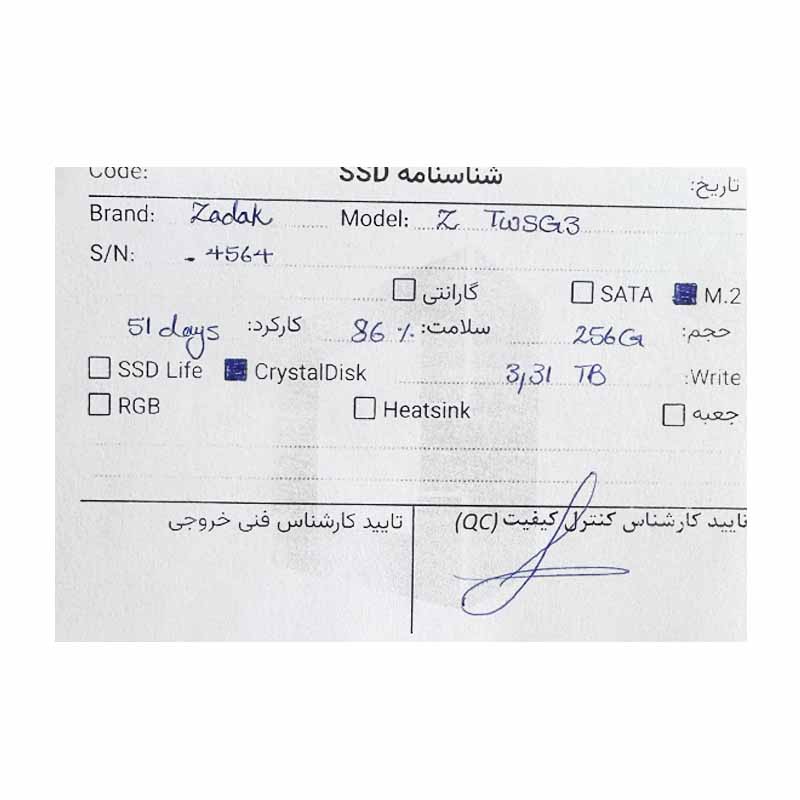 Code: شناسنامه SSD تاریخ:
Brand: Zadak Model: Z TWSG3
S/N: - 4564
گارانتی SATA M.2
حجم: 256G سلامت: 86 % کارکرد: 51 days
SSD Life CrystalDisk 3,31 TB Write:
RGB Heatsink جعبه
تایید کارشناس کنترل کیفیت (QC) تایید کارشناس فنی خروجی